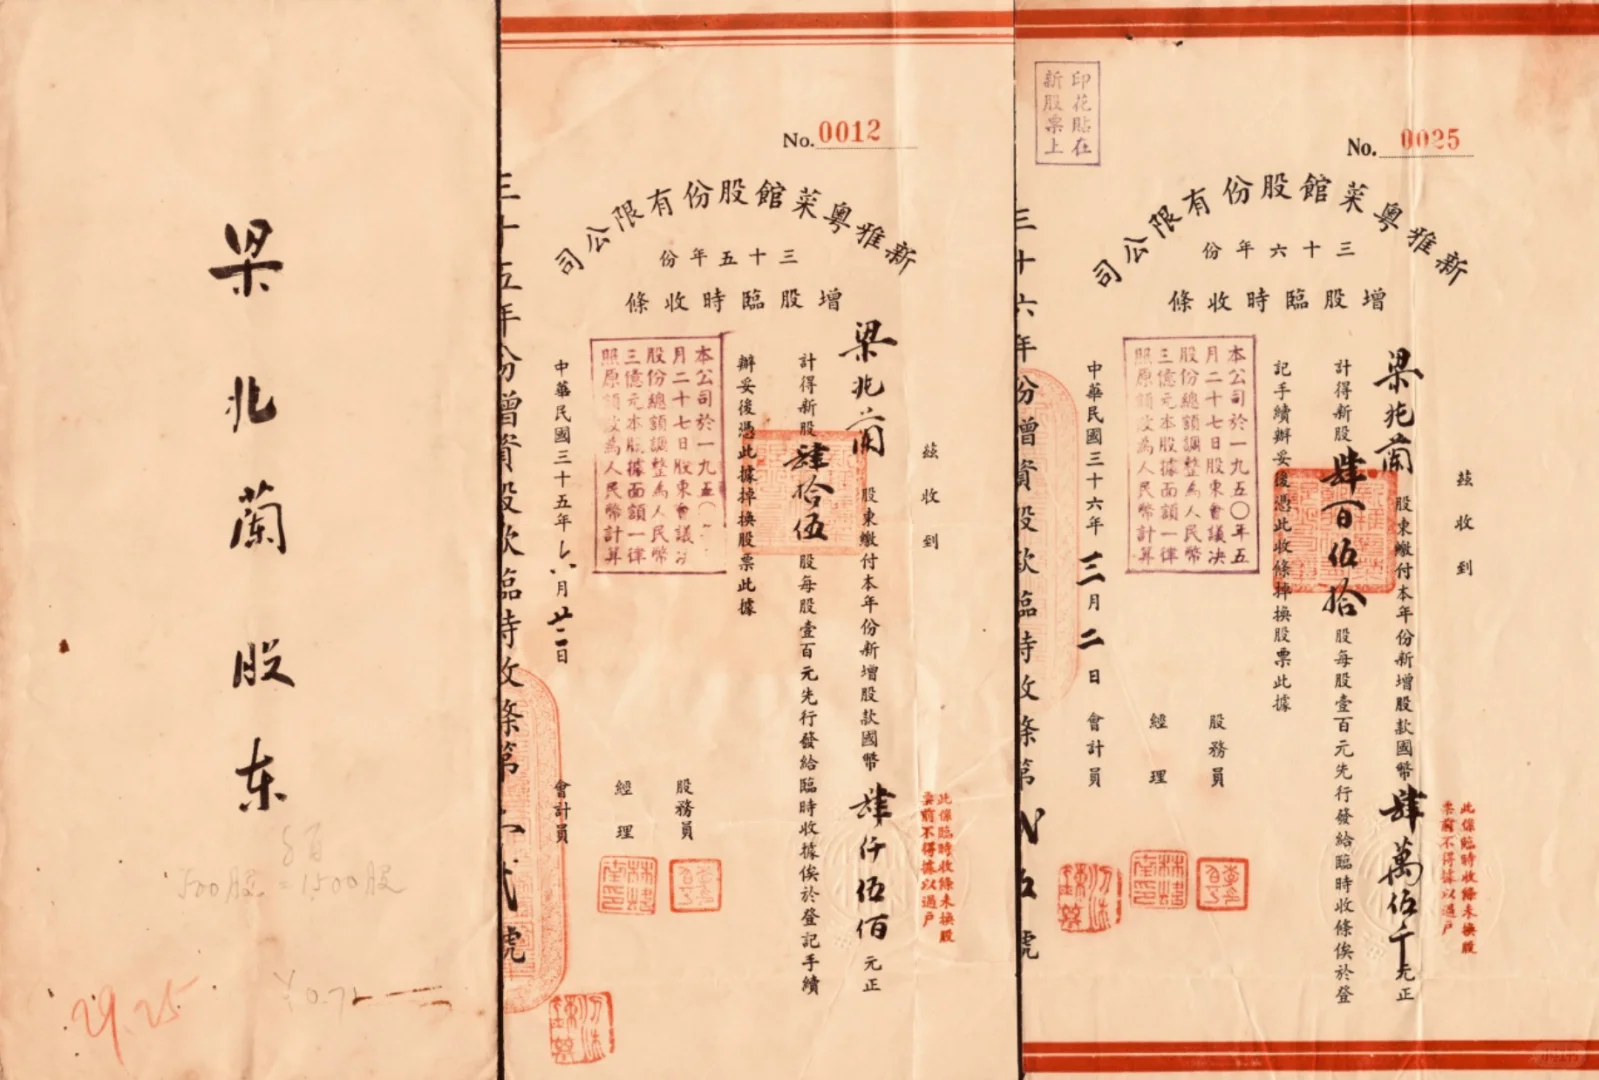 梁兆蘭股东
500股=1500股
29.25
No. 0012
新雅粵菜館股份有限公司
三十五年份
增股臨時收條
茲收到
梁兆蘭 股東繳付本年份新增股款國幣肆仟伍佰元正
計得新股肆拾伍股每股壹百元先行發給臨時收據俟於登記手續
辦妥後憑此據掉換股票此據
本公司於一九五〇
月二十七日股東會議决
股份總額調整為人民幣
三億元本股據面額一律
照原額改為人民幣計算
中華民國三十五年 月廿二日
股務員
經理
會計員
此係臨時收條未換股
票前不得據以過戶
三十五年份增資股款臨時收條第 弍號
印花貼在
新股票上
No. 0025
新雅粵菜館股份有限公司
三十六年份
增股臨時收條
茲收到
梁兆蘭 股東繳付本年份新增股款國幣肆萬伍千元正
計得新股肆百伍拾股每股壹百元先行發給臨時收條俟於登
記手續辦妥後憑此收條掉換股票此據
本公司於一九五〇年五
月二十七日股東會議决
股份總額調整為人民幣
三億元本股據面額一律
照原額改為人民幣計算
中華民國三十六年三月二日
股務員
經理
會計員
此係臨時收條未換股
票前不得據以過戶
三十六年份增資股款臨時收條第 伍號